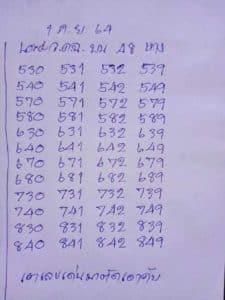 1 ต.ค 64
เลขเด่น.บน 48 ชุด
530 531 532 539
540 541 542 549
570 571 572 579
580 581 582 589
630 631 632 639
640 641 642 649
670 671 672 679
680 681 682 689
730 731 732 739
740 741 742 749
830 831 832 839
840 841 842 849
เอาเลขเด่นมาตัดเอาครับ